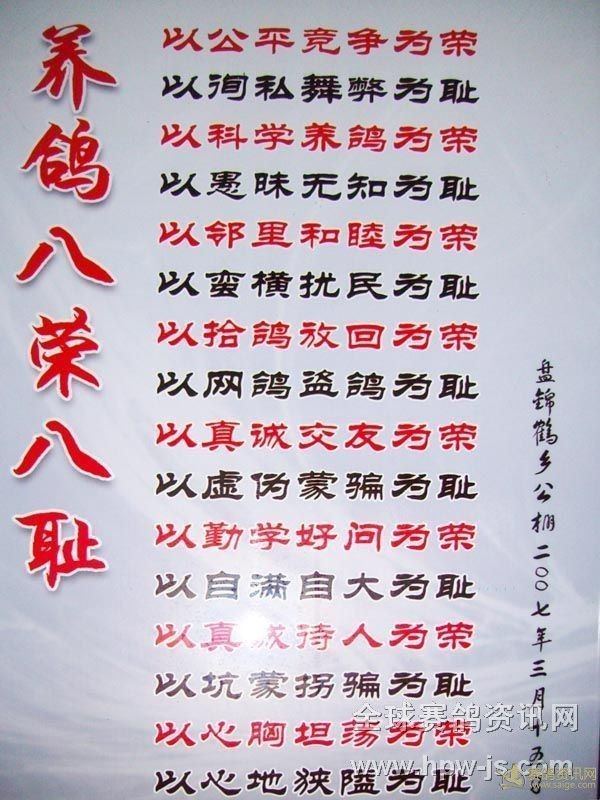 养鸽八荣八耻
以公平竞争为荣
以徇私舞弊为耻
以科学养鸽为荣
以愚昧无知为耻
以邻里和睦为荣
以蛮横扰民为耻
以拾鸽放回为荣
以网鸽盗鸽为耻
以真诚交友为荣
以虚伪蒙骗为耻
以勤学好问为荣
以自满自大为耻
以真诚待人为荣
以坑蒙拐骗为耻
以心胸坦荡为荣
以心地狭隘为耻
盘锦鹤乡公棚二〇〇七年三月十五
全球赛鸽资讯网
www.hpw-js.com
赛鸽资讯网
www.saige.com